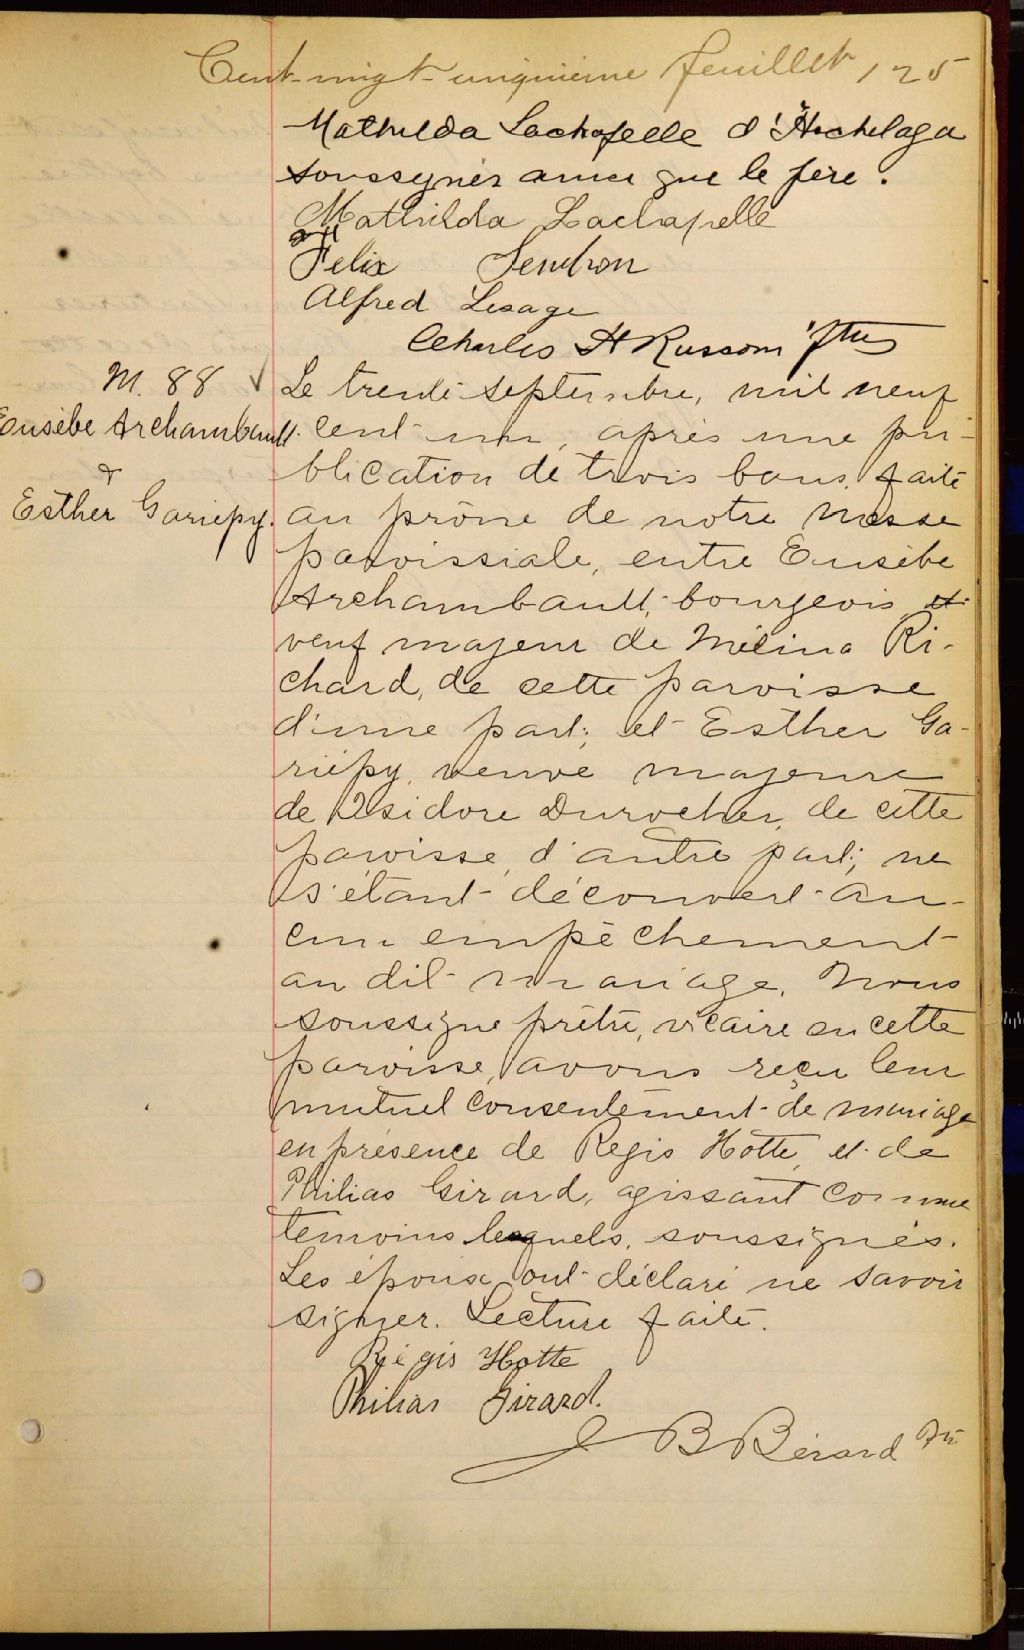 Cent-vingt-cinquième feuillet 125
Mathilda Lachapelle d'Hochelaga
soussignés ainsi que le père.
Mathilda Lachapelle
Felix Gendron
Alfred Lesage
Charles H Russom
M. 88
Eusèbe Archambault
&
Esther Gariépy.
Le trente septembre, mil neuf
cent-un, après une pu-
blication de trois bans, faite
au prône de notre Messe
paroissiale, entre Eusèbe
Archambault, bourgeois et
veuf majeur de Mélina Ri-
chard, de cette paroisse
d'une part; et Esther Ga-
riépy, veuve majeure
de Isidore Durocher, de cette
paroisse, d'autre part; ne
s'étant découvert au-
cun empêchement
au dit mariage, Nous
soussigné prêtre, vicaire en cette
paroisse, avons reçu leur
mutuel consentement de mariage
en présence de Régis Hotte, et de
Philias Girard, agissant comme
témoins lesquels, soussignés.
Les époux ont déclaré ne savoir
signer. Lecture faite.
Régis Hotte
Philias Girard.
J B Bérard